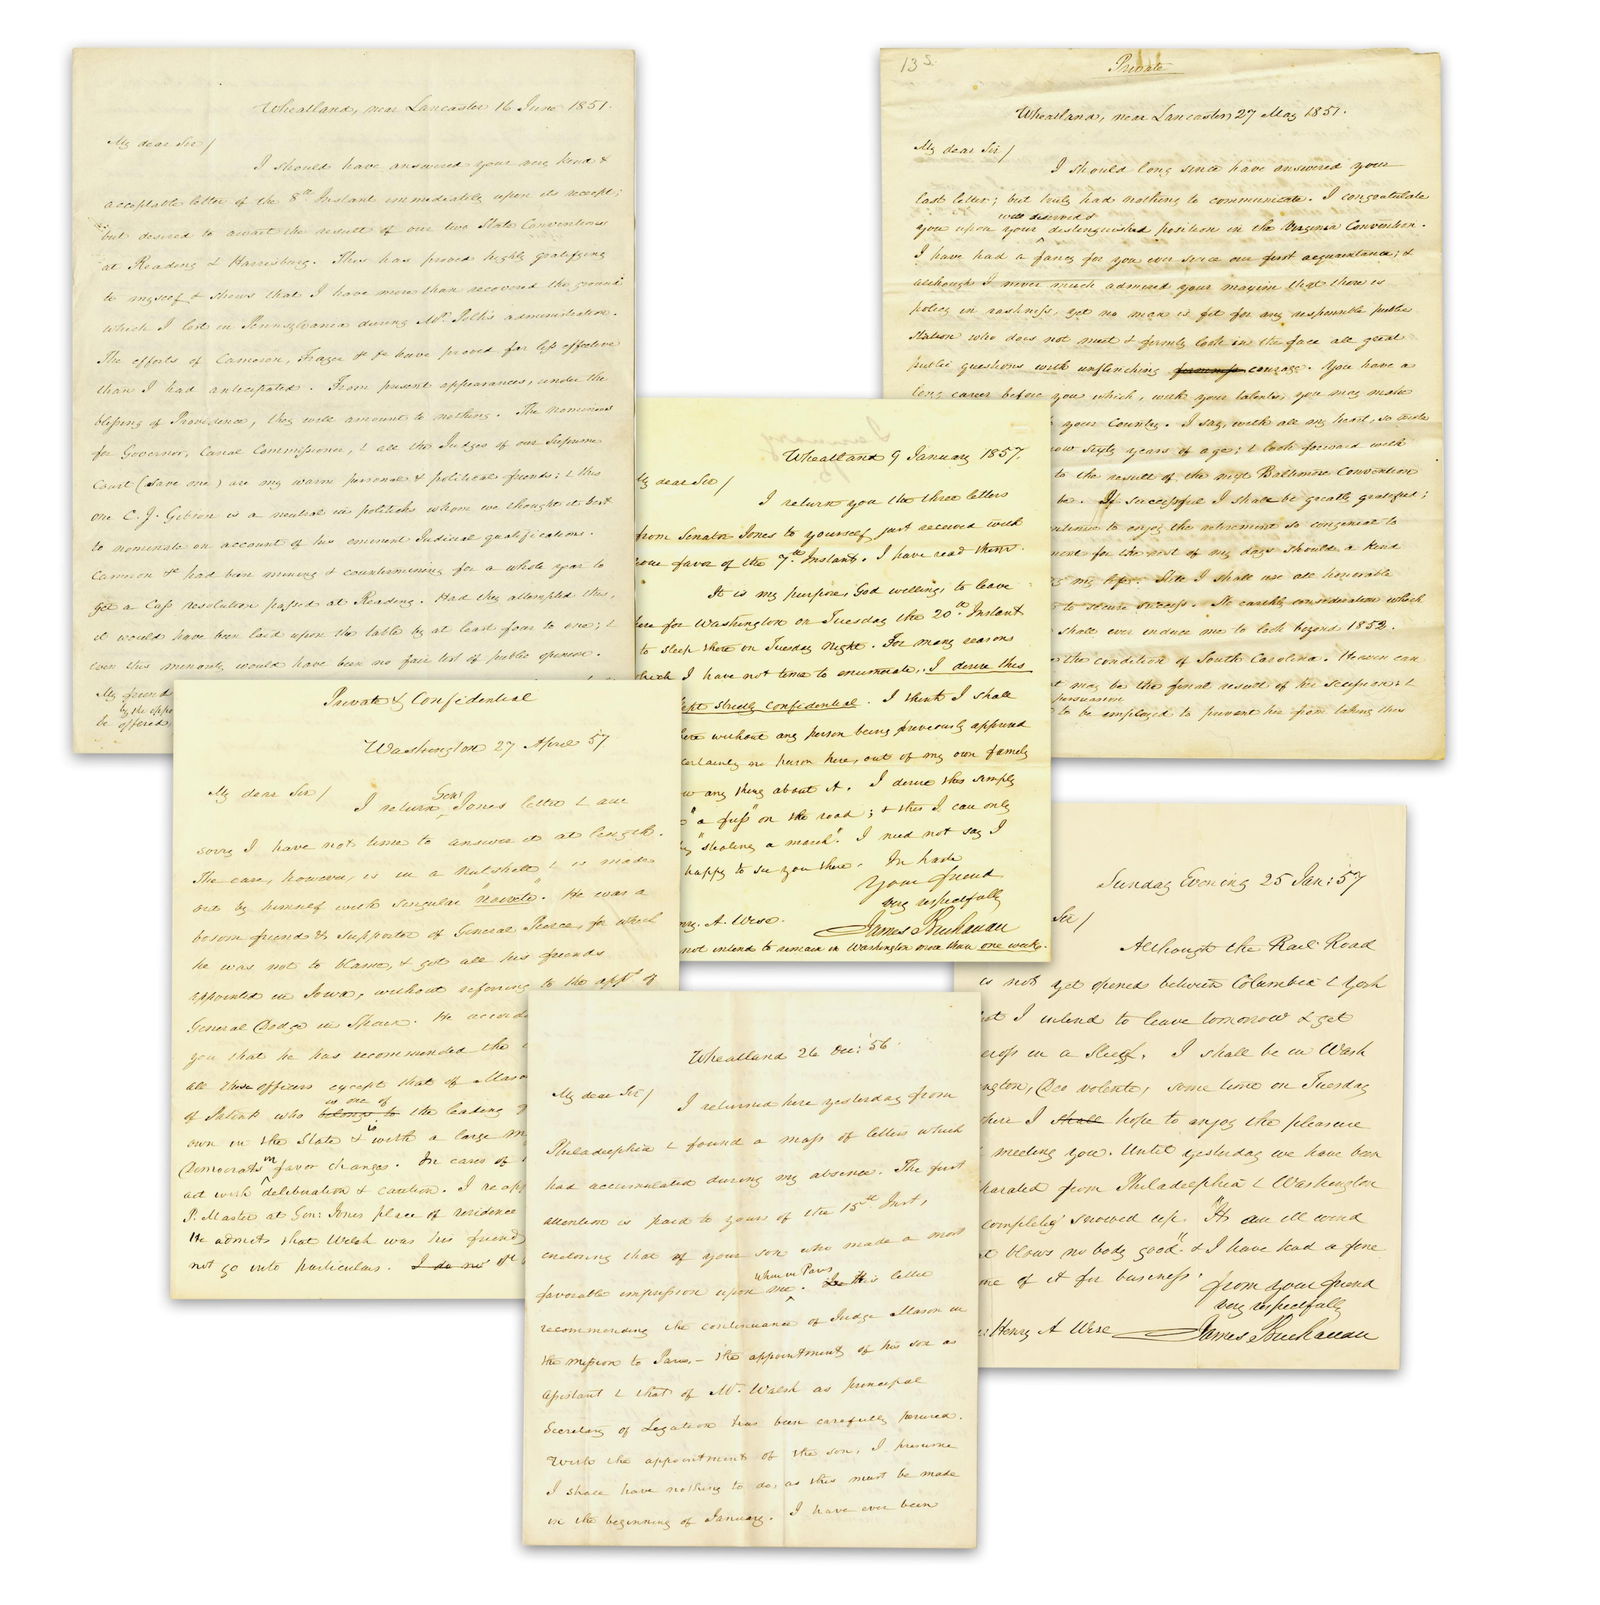 Wheatland, near Lancaster 16 June 1851.
My dear Sir/
I should have answered your very kind &
acceptable letter of the 8th Instant immediately upon its receipt;
but desired to await the result of our two State Conventions
at Reading & Harrisburg. This has proved highly gratifying
to myself & shows that I have more than recovered the ground
which I lost in Pennsylvania during Mr. Polk's administration.
The efforts of Cameron, Frazer &c &c have proved far less effective
than I had anticipated. From present appearances, under the
blessing of Providence, they will amount to nothing. The nominees
for Governor, Canal Commissioner, & all the Judges of our Supreme
Court (save one) are my warm personal & political friends; & this
one C. J. Gibson is a neutral in politicks whom we thought it best
to nominate on account of his eminent Judicial qualifications.
Cameron &c had been mining & countermining for a whole year to
get a Cass resolution passed at Reading. Had they attempted this,
it would have been laid upon the table by at least four to one; &
even this minority would have been no fair test of public opinion.
My friend
by the
be offered,
13
Private
Wheatland, near Lancaster 27 May 1851.
My dear Sir/
I should long since have answered your
last letter; but truly had nothing to communicate. I congratulate
well deserved &
you upon your distinguished position in the Virginia Convention.
I have had a fancy for you ever since our first acquaintance; &
although I never much admired your maxim that there is
policy in rashness, yet no man is fit for any responsible public
Station who does not meet & firmly look in the face all great
public questions with unflinching courage. You have a
long career before you which, with your talents, you may make
your Country. I say, with all my heart, so
now sixty years of age; & look forward with
to the result of the next Baltimore Convention
be. If successful I shall be greatly gratified;
to enjoy the retirement so congenial to
for the rest of my days should a kind
my life. Still I shall use all honorable
to secure success. No earthly consideration which
shall ever induce me to look beyond 1852.
the condition of South Carolina. Heaven can
may be the final result of her secession; &
persuasion
to be employed to prevent her from taking this
January
Wheatland 9 January 1857.
My dear Sir/
I return you the three letters
from Senator Jones to yourself just received with
your favor of the 7th Instant. I have read them.
It is my purpose, God willing, to leave
here for Washington on Tuesday the 20th Instant
to sleep there on Tuesday Night. For many reasons
which I have not time to enumerate, I desire this
kept strictly confidential. I think I shall
here without any person being previously apprised
certainly no person here, out of my own family
any thing about it. I desire this simply
"a fuss" on the road; & this I can only
"stealing a march". I need not say I
happy to see you there. In haste
Your friend
very respectfully
James Buchanan
Henry A. Wise.
not intend to remain in Washington more than one week.
Private & Confidential
Washington 27 April 57.
My dear Sir/
Genl
I return Jones letter & am
sorry I have not time to answer it at length.
The case, however, is in a Nutshell & is made
out by himself with singular "naivete". He was a
bosom friend & supporter of General Pierce, for which
he was not to blame, & got all his friends
appointed in Iowa, without referring to the appt of
General Dodge in Spain. He
you that he has recommended the
all those officers except that of Mason
is one of
of Patents who belongs to the leading
own in the State & is with a large
Democrats in favor changes. In cases of
act with deliberation & caution. I
P. Master at Gen: Jones place of residence
He admits that Welsh was his friend
not go into particulars. I do not
Sunday Evening 25 Jan: 57
Sir/
Although the Rail Road
is not yet opened between Columbia & York
I intend to leave tomorrow & get
across in a Sleigh. I shall be in Wash
ington, Deo volente, some time on Tuesday
where I shall hope to enjoy the pleasure
meeting you. Until yesterday we have been
separated from Philadelphia & Washington
completely snowed up. "It's an ill wind
blows no body good" & I have had a fine
time of it for business.
from your friend
very respectfully
Henry A Wise James Buchanan
Wheatland 26 Dec: '56.
My dear Sir/
I returned here yesterday from
Philadelphia & found a mass of letters which
had accumulated during my absence. The first
attention is paid to yours of the 15th Inst,
enclosing that of your son who made a most
when in Paris
favorable impression upon me. This letter
recommending the continuance of Judge Mason in
the mission to Paris,- the appointment of his son as
assistant & that of Mr. Walsh as principal
Secretary of Legation has been carefully perused.
With the appointment of the son, I presume
I shall have nothing to do, as this must be made
in the beginning of January. I have ever been